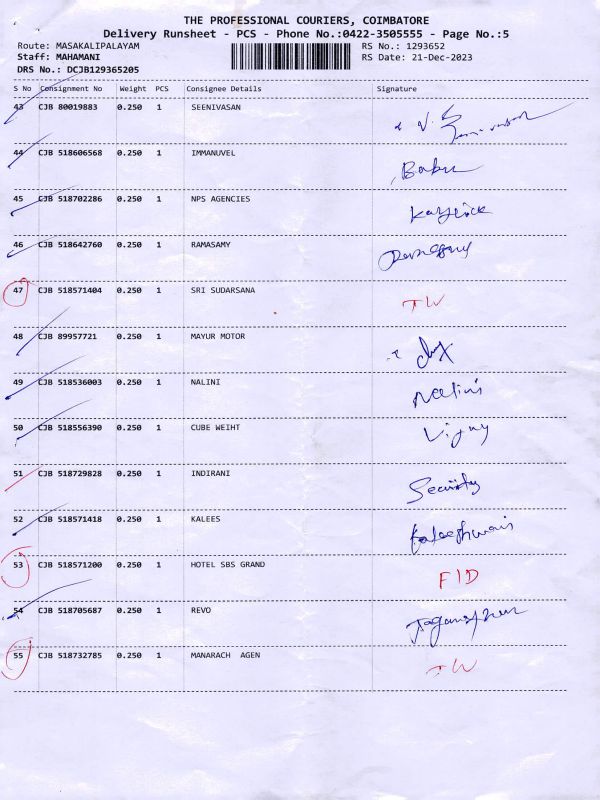 THE PROFESSIONAL COURIERS, COIMBATORE
Delivery Runsheet - PCS - Phone No.:0422-3505555 - Page No.:5
Route: MASAKALIPALAYAM RS No.: 1293652
Staff: MAHAMANI RS Date: 21-Dec-2023
DRS No.: DCJB129365205
S No Consignment No Weight PCS Consignee Details Signature
43 CJB 80019883 0.250 1 SEENIVASAN
44 CJB 518606568 0.250 1 IMMANUVEL Babu
45 CJB 518702286 0.250 1 NPS AGENCIES
46 CJB 518642760 0.250 1 RAMASAMY
47 CJB 518571404 0.250 1 SRI SUDARSANA IW
48 CJB 89957721 0.250 1 MAYUR MOTOR
49 CJB 518536003 0.250 1 NALINI Nalini
50 CJB 518556390 0.250 1 CUBE WEIHT Vijay
51 CJB 518729828 0.250 1 INDIRANI Security
52 CJB 518571418 0.250 1 KALEES
53 CJB 518571200 0.250 1 HOTEL SBS GRAND FID
54 CJB 518705687 0.250 1 REVO
55 CJB 518732785 0.250 1 MANARACH AGEN IW